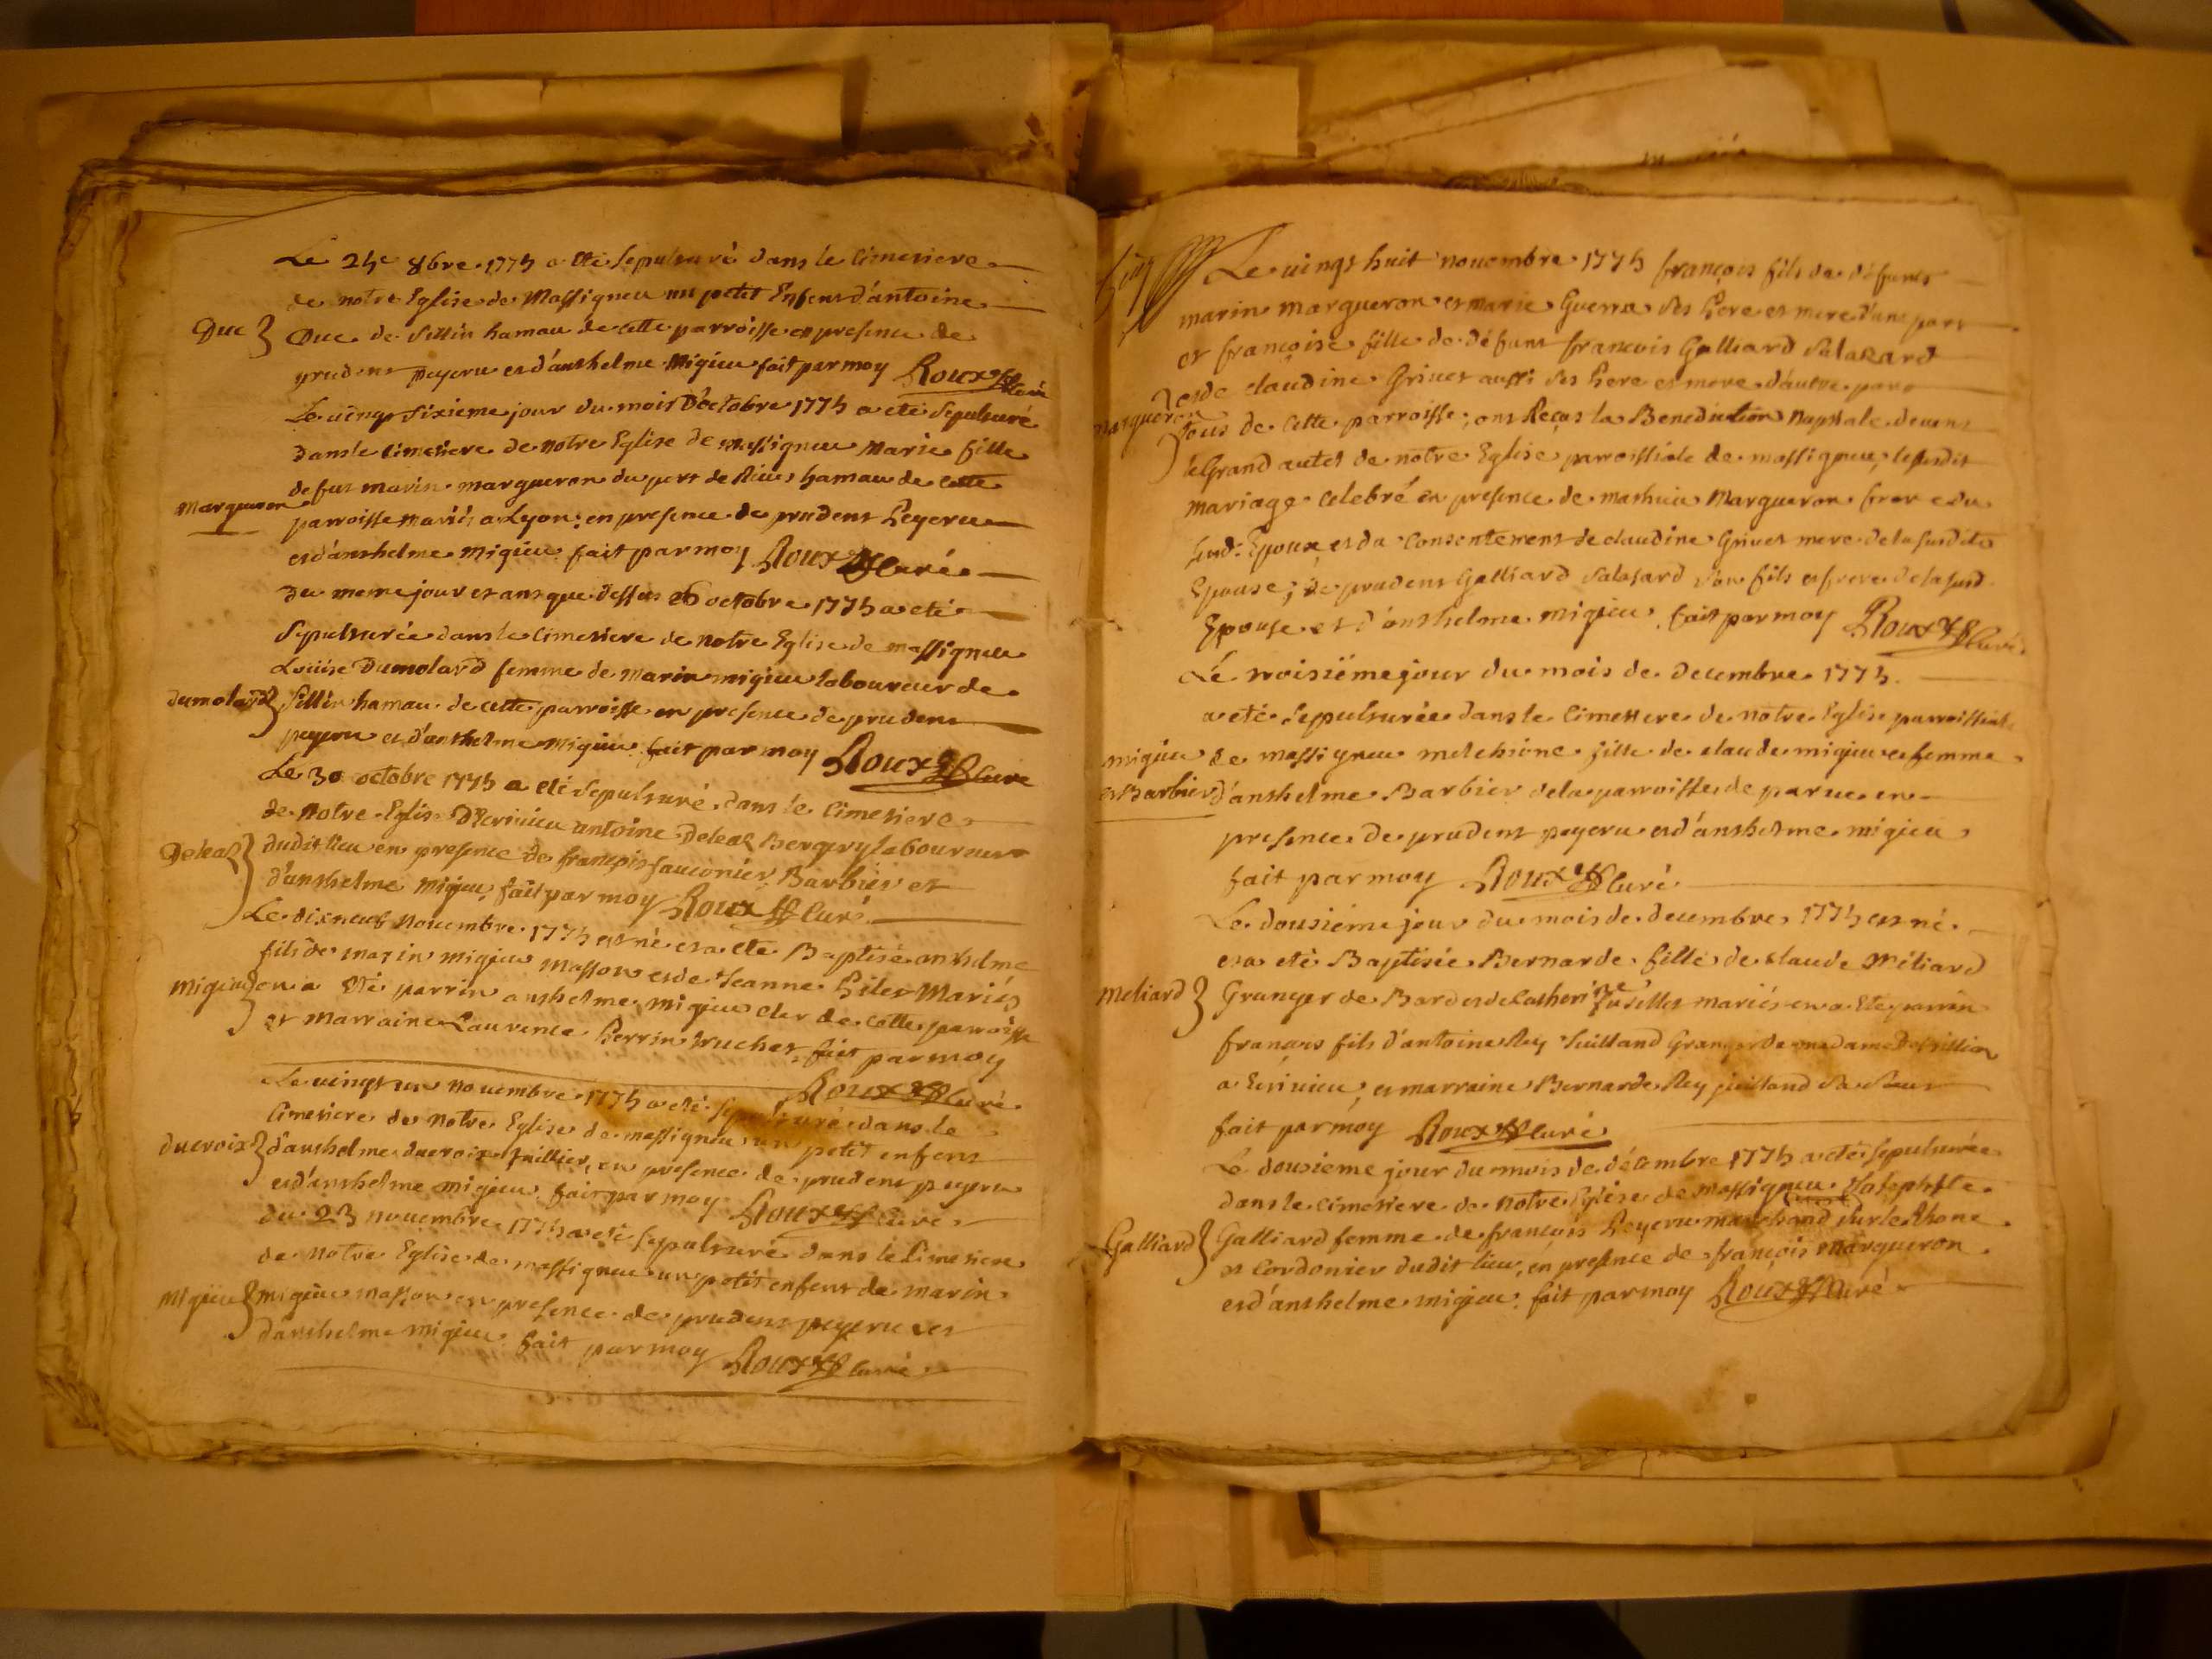 Le 24e 8bre 1775 a eté sepulturé dans le Cimetiere
de notre Eglise de Massigneu un petit Enfent d'antoine
Duc
Duc de Sillin hamau de cette parroisse en presence de
prudent peyeru et d'anthelme Migieu fait par moy Roux Curé
Le vingt sixieme jour du mois D'octobre 1775 a eté sepulturé
dans le Cimetiere de notre Eglise de massigneu Marie fille
Margueron
de fut marin margueron du port de hamau de cette
parroisse mariés a Lyon; en presence de prudent Peyeru
et d'anthelme Migieu fait par moy Roux Curé
du meme jour et an que dessus 26 octobre 1775 a eté
sepulturée dans le Cimetiere de notre Eglise de massigneu
Louise Dumolard femme de Marin migieu laboureur de
dumolard
Sillin hamau de cette parroisse en presence de prudent
peyeru et d'anthelme Migieu fait par moy Roux Curé
Le 30 octobre 1775 a eté sepulturé dans le Cimetiere
de notre Eglise D'Ecrivieu antoine Deleaz Bergery laboureur
Deleaz
dudit lieu en presence de françois fauconier Barbier et
d'anthelme Migieu, fait par moy Roux Curé
Le dix neuf Novembre 1775 est né et a eté Baptisé anthelme
fils de marin migieu masson et de Jeanne Pilet Mariés
Migieu
en a eté parrin anthelme migieu cler de cette parroisse
et Marraine Laurence Perrin truchet, fait par moy
Roux Curé
Le vingt un novembre 1775 a eté sepulturé dans le
Cimetiere de notre Eglise de massigneu un petit enfent
ducroix
d'anthelme ducroix tuillier, en presence de prudent peyeru
et d'anthelme migieu fait par moy Roux Curé
du 23 novembre 1775 a eté sepulturé dans le Cimetiere
de notre Eglise de massigneu un petit enfent de marin
Migieu
migieu masson en presence de prudent peyeru et
d'anthelme migieu fait par moy Roux Curé
Le vingt huit novembre 1775 françois fils de défunt
marin margueron et marie Guerra ses Pere et mere d'une part
et françoise fille de défunt françois Galliard Salazard
et de claudine Grivet aussi ses Pere et mere d'autre part
Margueron
tous de cette parroisse; ont Reçus la Benediction Nuptiale devant
le Grand autel de notre Eglise parroissiale de massigneu, le susdit
mariage celebré en presence de mathieu Margueron frere du
susd: Epoux et du Consentement de claudine Grivet mere de la susdite
Epouse; de prudent Galliard Salasard son fils et frere de la susd
Epouse et d'anthelme migieu, fait par moy Roux Curé
Le troisiéme jour du mois de decembre 1775
a eté sepulturée dans le Cimettiere de notre Eglise parroissial
migieu
de massigneu melchione fille de claude migieu et femme
et Barbier
d'anthelme Barbier de la parroisse de parve en
presence de prudent peyeru et d'anthelme migieu
fait par moy Roux Curé
Le dousiéme jour du mois de decembre 1775 est né
et a eté Baptisée Bernarde fille de claude Méliard
Meliard
Granger de Bard et de Catherine fusillet mariés en a eté parrin
françois fils d'antoine Rey Juilland Granger de madame
a Ecrivieu; et marraine Bernarde Rey juilland sa soeur
fait par moy Roux Curé
Le dousieme jour du mois de décembre 1775 a eté sepulturée
dans le Cimetiere de notre Eglise de massigneu Josephte
Galliard
Galliard femme de françois Peyeru marchand sur le Rhone
et Cordonier dudit lieu, en presence de françois Margueron
et d'anthelme migieu, fait par moy Roux Curé